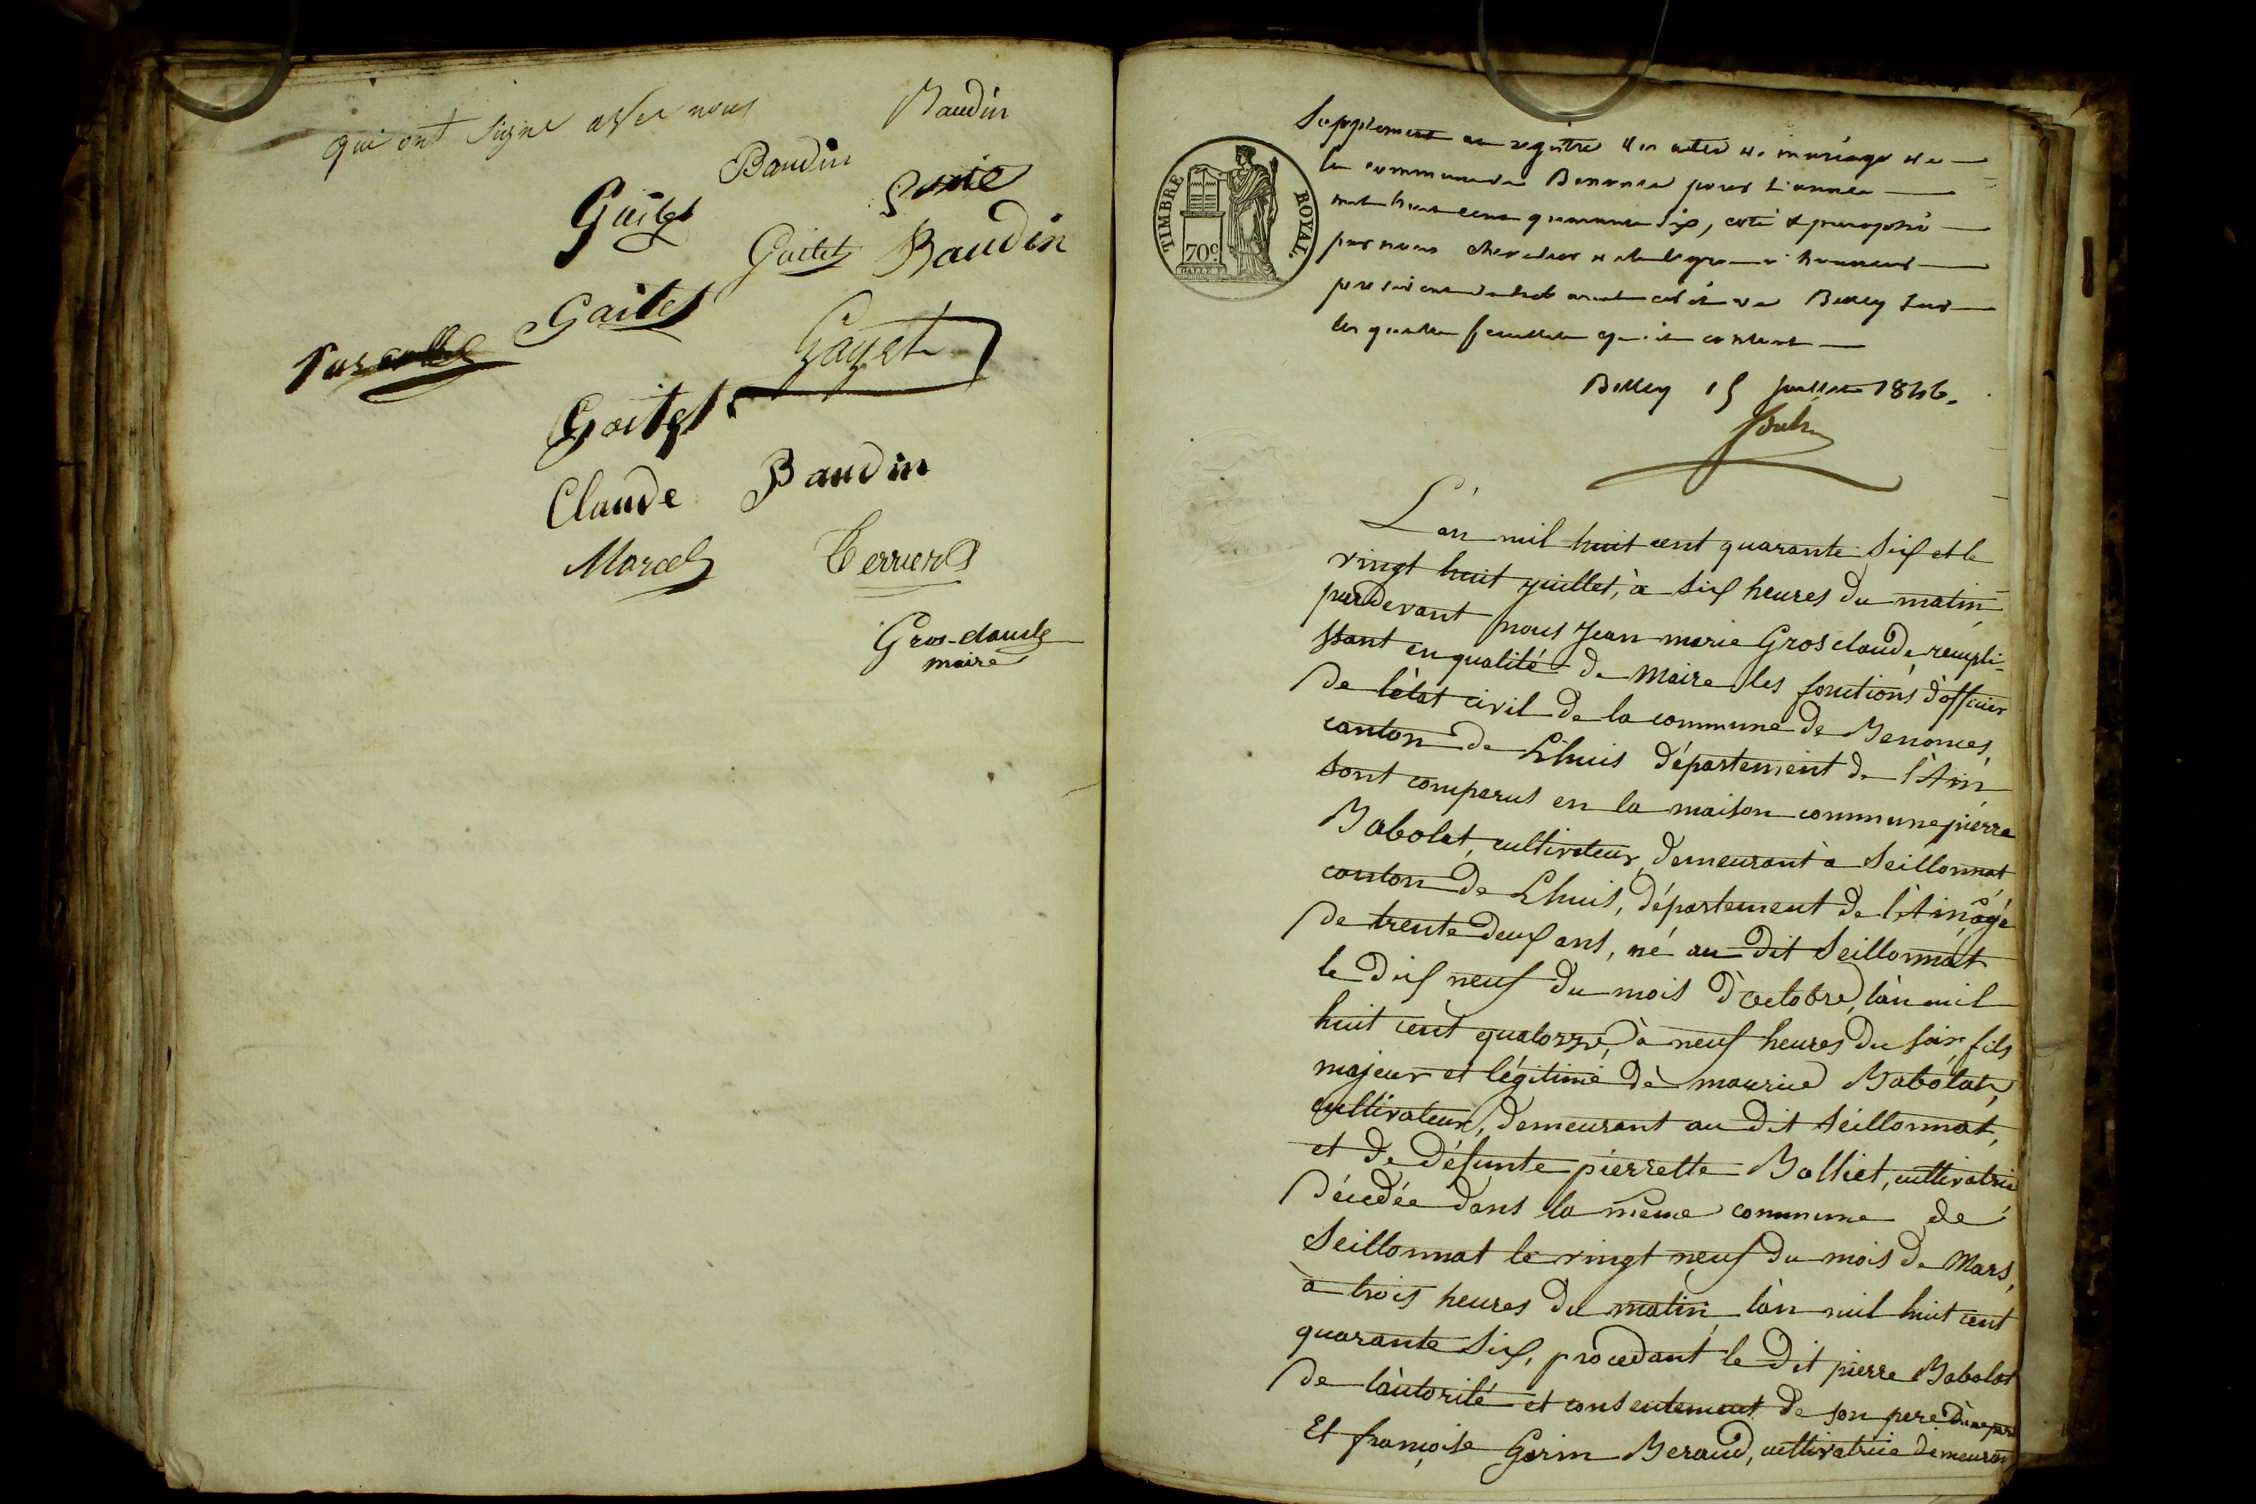 qui ont signé avec nous
Baudin
Baudin
Gaitet
Gaitet
Baudin
Gaitet
Gayet
Gaitet
Claude Baudin
Marcel
Terrier
Gros-claude
maire
TIMBRE ROYAL.
70c
Supplément au registre des actes de mariage de
la commune de Benonces pour l'année
mil huit cent quarante six, coté & paraphé
par nous chevalier de la légion d'honneur
président du tribunal civil de Belley sur
les quatre feuillets qu'il contient
Belley 15 juillet 1846.
L'an mil huit cent quarante six et le
vingt huit juillet, à six heures du matin
pardevant nous Jean marie Grosclaude rempli-
ssant en qualité de Maire les fonctions d'officier
de l'état civil de la commune de Benonces,
canton de Lhuis département de l'Ain
sont comparus en la maison commune pierre
Babolat, cultivateur, demeurant à Seillonnat
canton de Lhuis, département de l'Ain, âgé
de trente deux ans, né au dit Seillonnat
le dix neuf du mois d'octobre, l'an mil
huit cent quatorze, à neuf heures du soir, fils
majeur et légitime de maurice Babolat,
cultivateur, demeurant au dit Seillonnat,
et de défunte pierrette Bolliet, cultivatrice
décédée dans la même commune de
Seillonnat le vingt neuf du mois de Mars,
à trois heures du matin, l'an mil huit cent
quarante six, procédant le dit pierre Babolat
de l'autorité et consentement de son père d'une part
Et françoise Gorin Beraud, cultivatrice demeurant